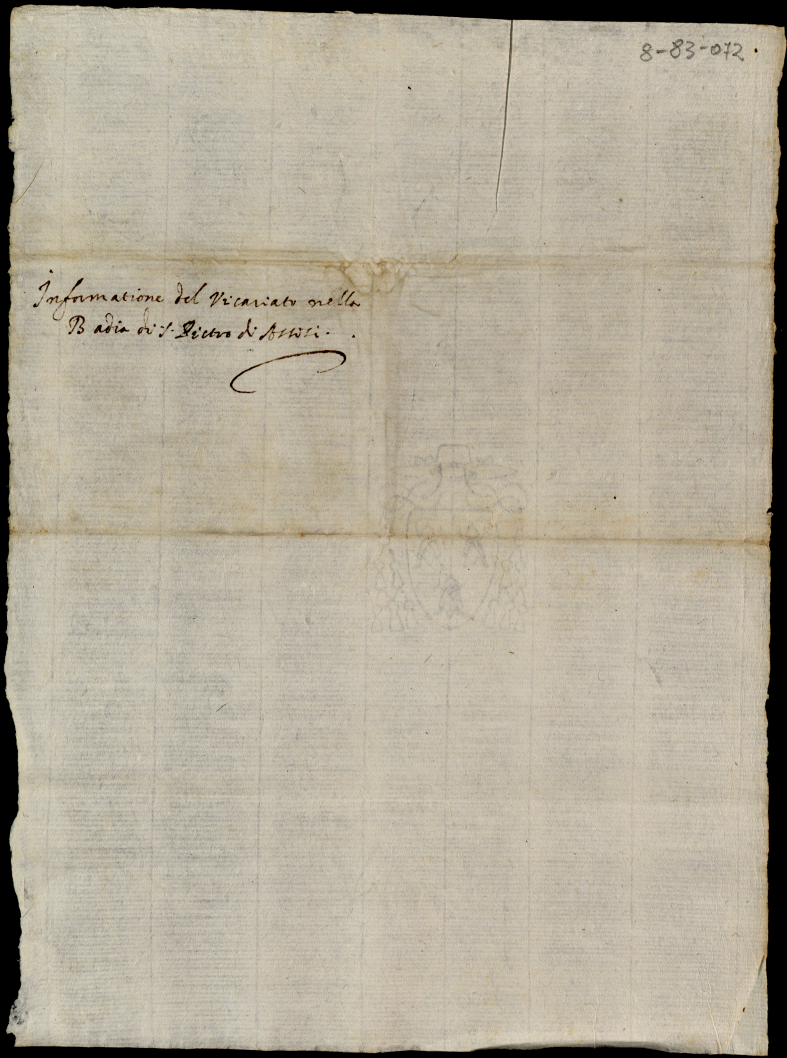 8-83-072
Informatione del Vicariato nella
Badia di S. Pietro di Assisi.